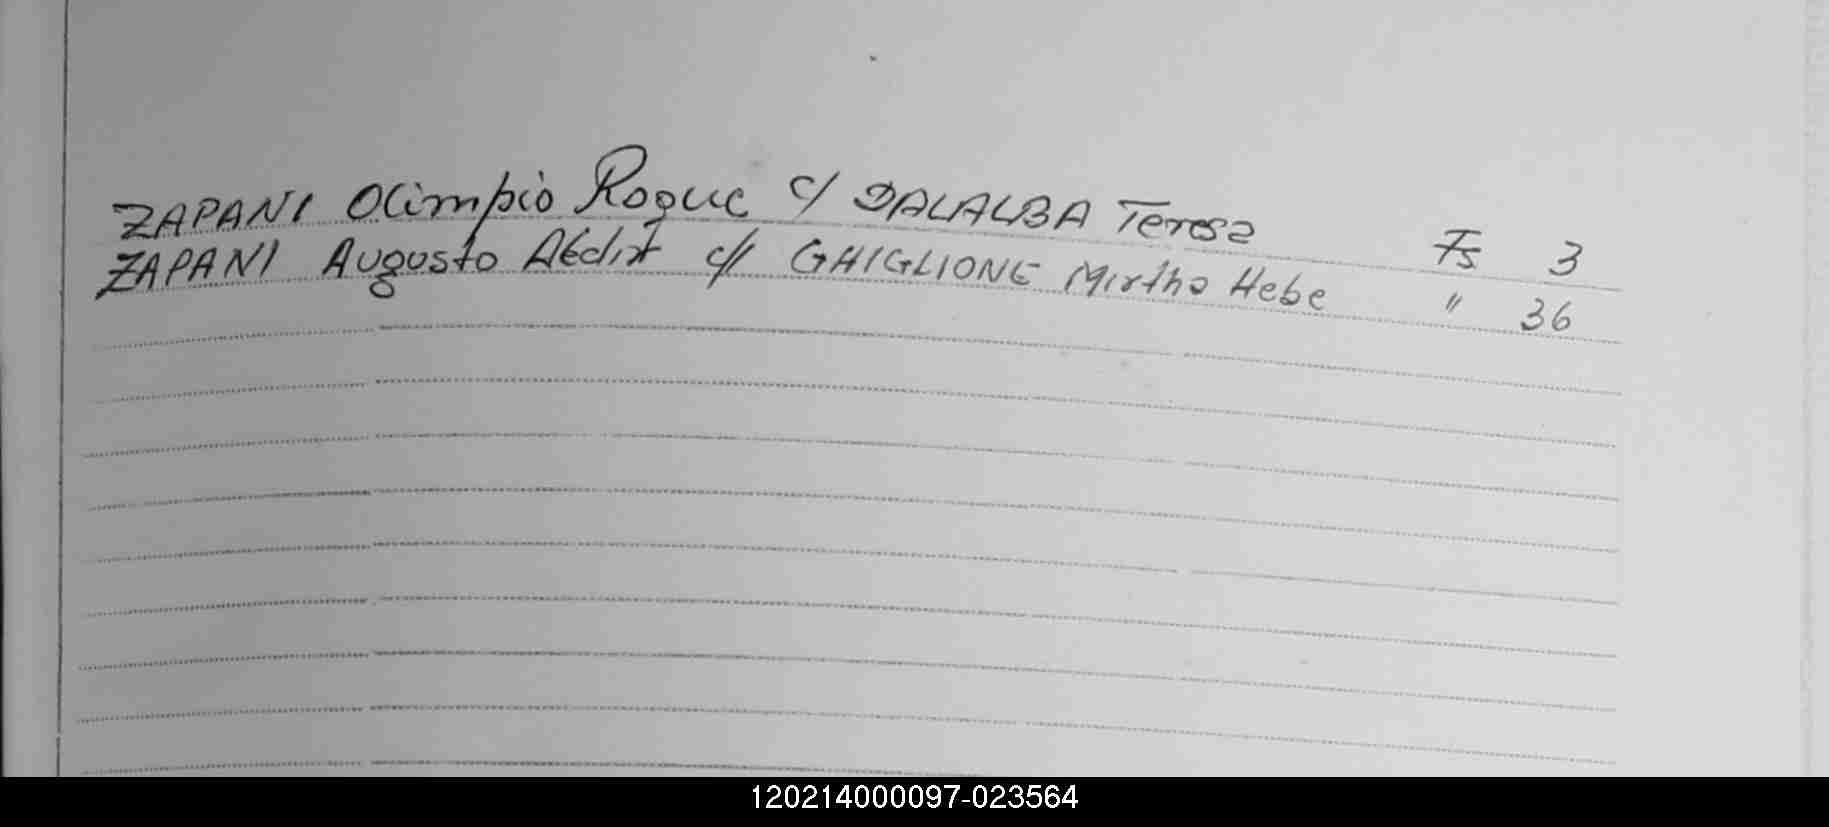 ZAPANI Olimpio Roque c/ DALALBA Teresa Fs 3
ZAPANI Augusto c/ GHIGLIONE Mirtha Hebe " 36
120214000097-023564